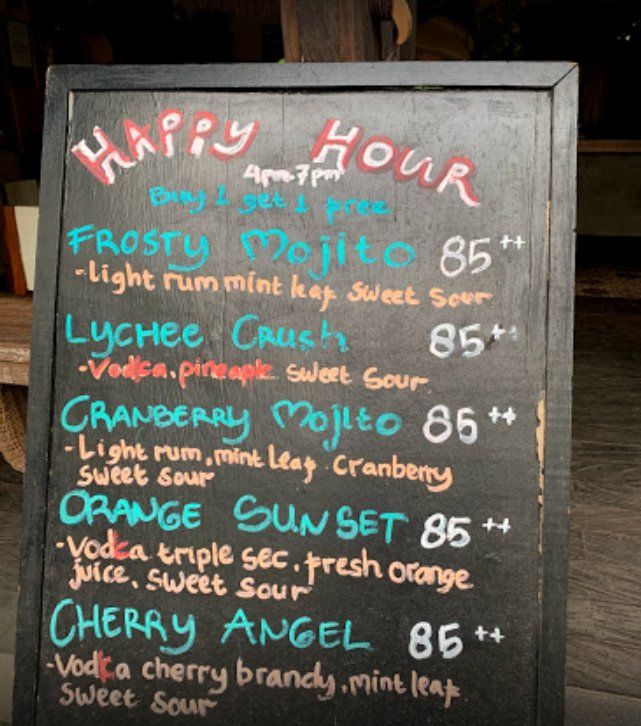 HAPPY HOUR
4pm-7pm
Buy 1 get 1 free
FROSTY Mojito 85++
-light rum mint leaf sweet sour
LYCHEE Crush 85++
-Vodca.pineaple sweet sour
CRANBERRY Mojito 85++
-Light rum.mint leaf cranberry
sweet sour
ORANGE SUNSET 85++
-Vodca triple sec.fresh orange
juice. sweet sour
CHERRY ANGEL 85++
-Vodka cherry brandy.mint leaf
sweet sour